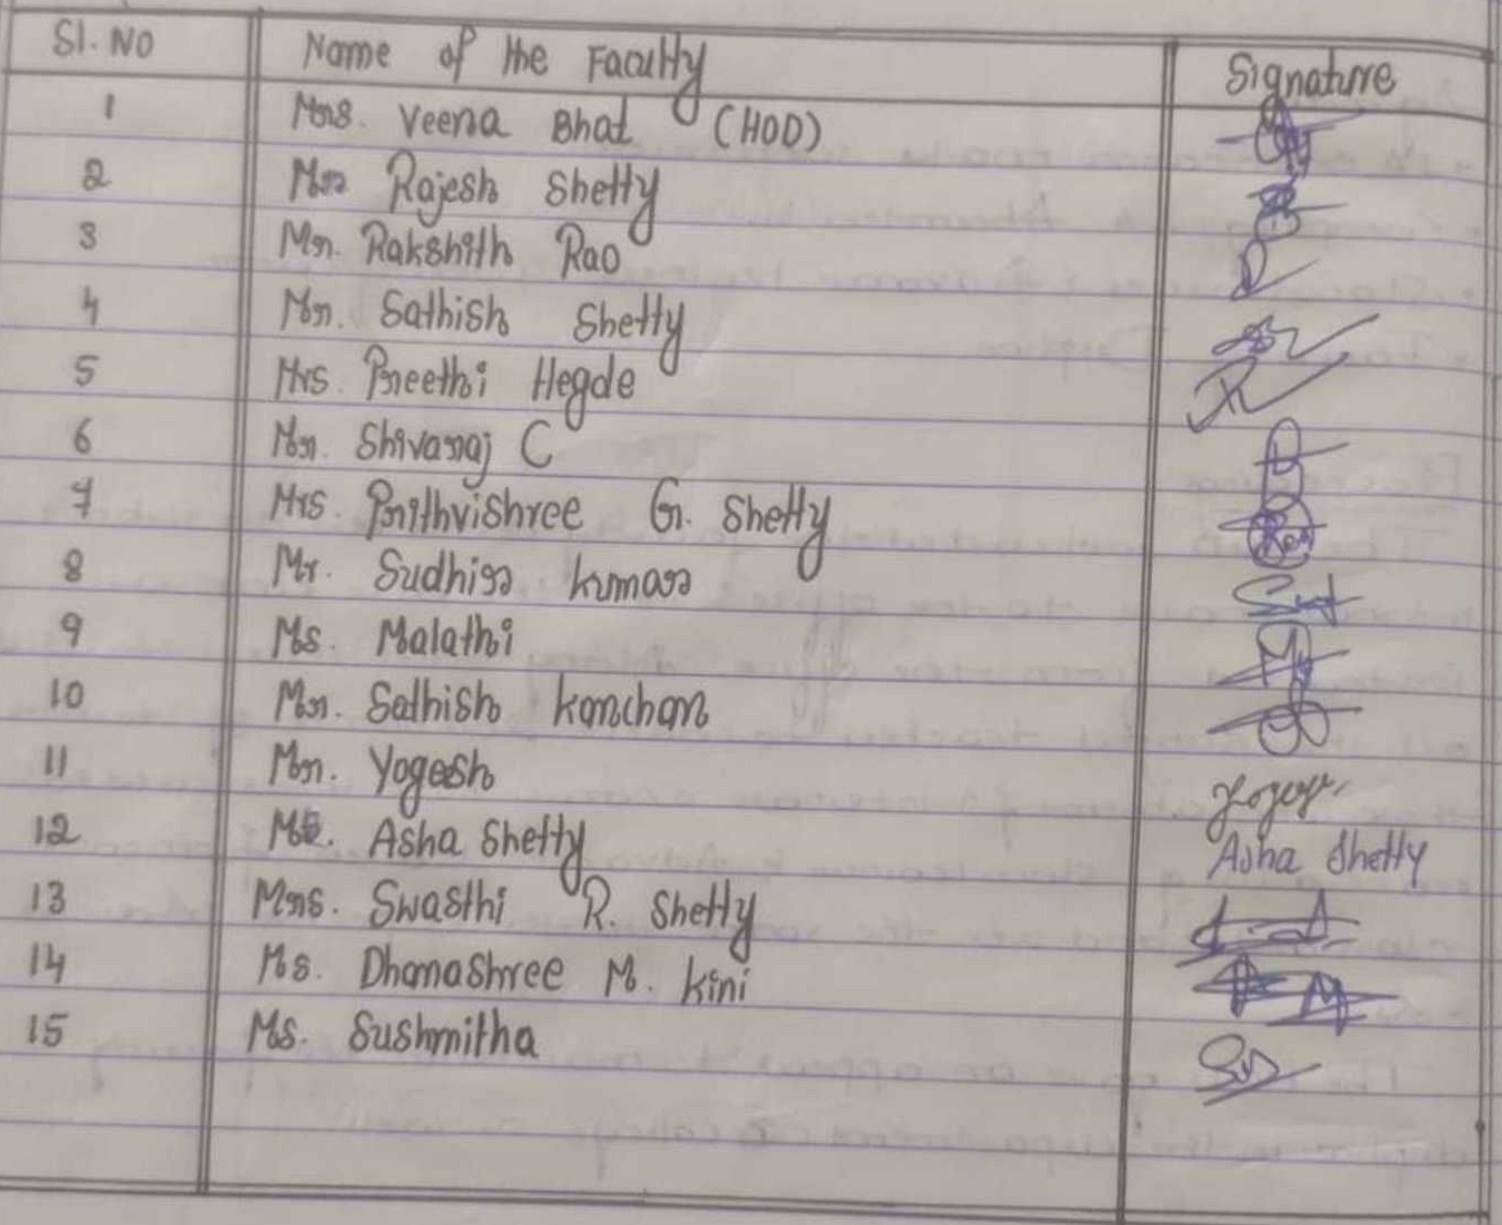 Sl. No Name of the Faculty Signature
1 Mrs. Veena Bhat (HOD)
2 Mr Rajesh Shetty
3 Mr. Rakshith Rao
4 Mr. Sathish Shetty
5 Mrs. Preethi Hegde
6 Mr. Shivaraj C
7 Mrs. Prithvishree G. Shetty
8 Mr. Sudhir kumar
9 Ms. Malathi
10 Mr. Sathish kanchan
11 Mr. Yogesh
12 Ms. Asha Shetty Asha Shetty
13 Mrs. Swasthi R. Shetty
14 Ms. Dhanashree M. kini
15 Ms. Sushmitha